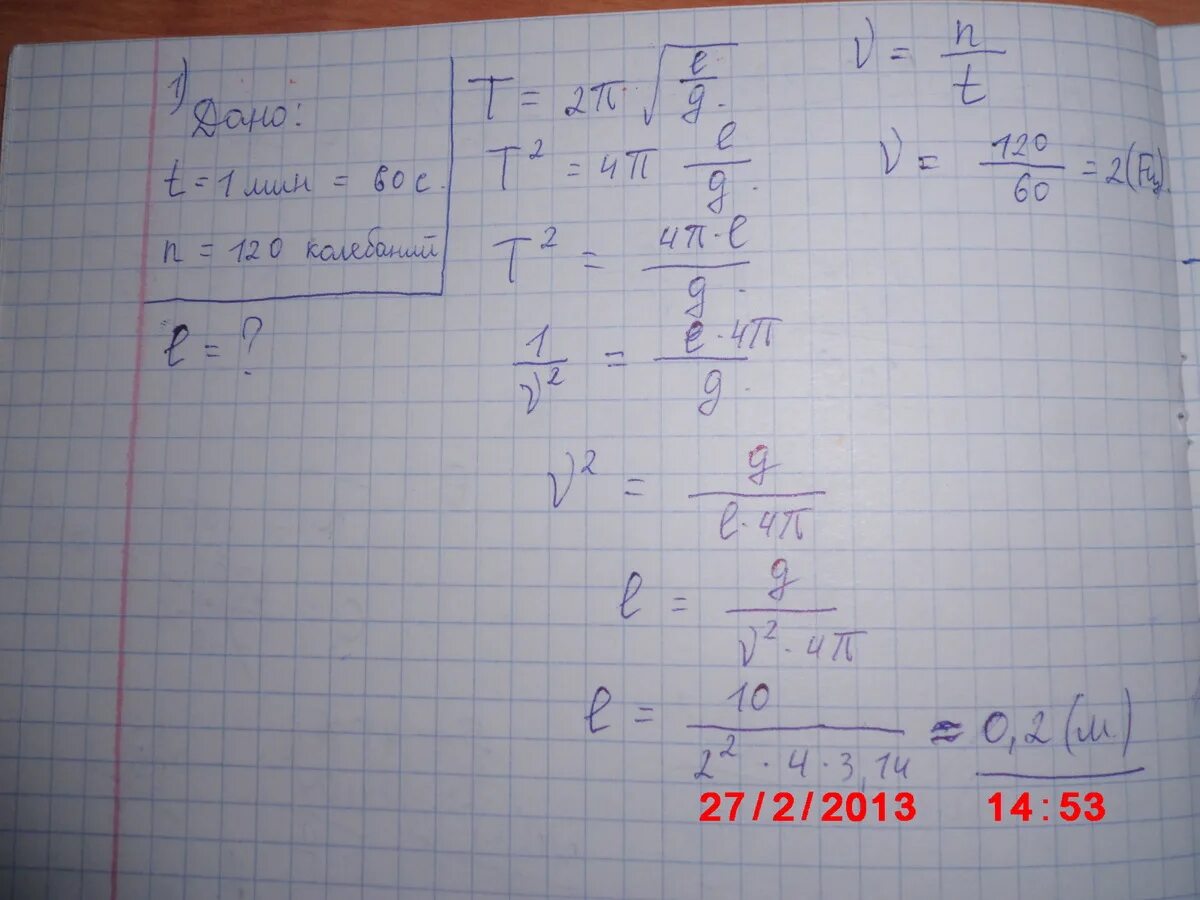 1)
Дано:
t = 1 мин = 60 с.
n = 120 колебаний
l = ?
T = 2π √(l/g).
T² = 4π l/g.
T² = 4π·l/g.
1/ν² = l·4π/g.
ν² = g/(l·4π)
l = g/(ν²·4π)
l = 10/(2²·4·3,14) ≈ 0,2 (м.)
ν = n/t
ν = 120/60 = 2 (Гц).
27/2/2013 14:53